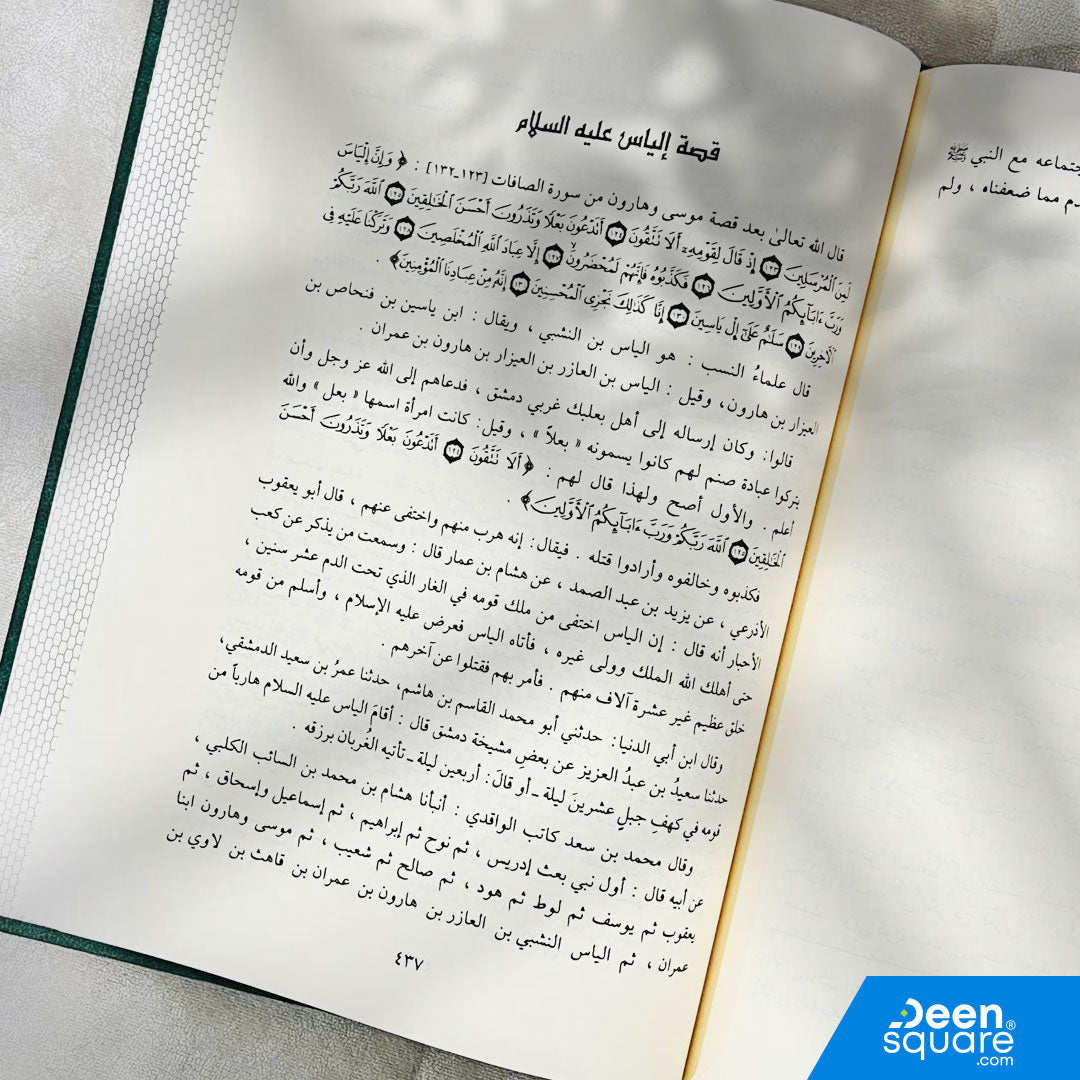 قصة إلياس عليه السلام
قال الله تعالىٰ بعد قصة موسى وهارون من سورة الصافات [١٢٣ـ١٣٢] : ﴿ وَإِنَّ إِلْيَاسَ
لَمِنَ ٱلْمُرْسَلِينَ ١٢٣ إِذْ قَالَ لِقَوْمِهِۦٓ أَلَا تَتَّقُونَ ١٢٤ أَتَدْعُونَ بَعْلًا وَتَذَرُونَ أَحْسَنَ ٱلْخَٰلِقِينَ ١٢٥ ٱللَّهَ رَبَّكُمْ
وَرَبَّ ءَابَآئِكُمُ ٱلْأَوَّلِينَ ١٢٦ فَكَذَّبُوهُ فَإِنَّهُمْ لَمُحْضَرُونَ ١٢٧ إِلَّا عِبَادَ ٱللَّهِ ٱلْمُخْلَصِينَ ١٢٨ وَتَرَكْنَا عَلَيْهِ فِى
ٱلْأٓخِرِينَ ١٢٩ سَلَٰمٌ عَلَىٰٓ إِلْ يَاسِينَ ١٣٠ إِنَّا كَذَٰلِكَ نَجْزِى ٱلْمُحْسِنِينَ ١٣١ إِنَّهُۥ مِنْ عِبَادِنَا ٱلْمُؤْمِنِينَ﴾ .
قال علماءُ النسب : هو الياس بن النشبي ، ويقال : ابن ياسين بن فنحاص بن
العيزار بن هارون، وقيل : الياس بن العازر بن العيزار بن هارون بن عمران .
قالوا: وكان إرساله إلى أهل بعلبك غربي دمشق ، فدعاهم إلى الله عز وجل وأن
يتركوا عبادة صنم لهم كانوا يسمونه « بعلاً » ، وقيل: كانت امرأة اسمها « بعل » والله
أعلم . والأول أصح ولهذا قال لهم : ﴿ أَلَا تَتَّقُونَ ١٢٤ أَتَدْعُونَ بَعْلًا وَتَذَرُونَ أَحْسَنَ
ٱلْخَٰلِقِينَ ١٢٥ ٱللَّهَ رَبَّكُمْ وَرَبَّ ءَابَآئِكُمُ ٱلْأَوَّلِينَ ﴾ .
فكذبوه وخالفوه وأرادوا قتله . فيقال: إنه هرب منهم واختفى عنهم ، قال أبو يعقوب
الأذرعي ، عن يزيد بن عبد الصمد ، عن هشام بن عمار قال : وسمعت من يذكر عن كعب
الأحبار أنه قال : إن الياس اختفى من ملك قومه في الغار الذي تحت الدم عشر سنين ،
حتى أهلك الله الملك وولى غيره ، فأتاه الياس فعرض عليه الإسلام ، وأسلم من قومه
خلق عظيم غير عشرة آلاف منهم . فأمر بهم فقتلوا عن آخرهم .
وقال ابن أبي الدنيا: حدثني أبو محمد القاسم بن هاشم، حدثنا عمرُ بن سعيد الدمشقي،
حدثنا سعيدُ بن عبدُ العزيز عن بعضِ مشيخة دمشق قال : أقامَ الياس عليه السلام هارباً من
قومه في كهفِ جبلٍ عشرينَ ليلة ـ أو قالَ: أربعين ليلة ـ تأتيه الغُربان برزقه .
وقال محمد بن سعد كاتب الواقدي : أنبأنا هشام بن محمد بن السائب الكلبي ،
عن أبيه قال : أول نبي بعث إدريس ، ثم نوح ثم إبراهيم ، ثم إسماعيل وإسحاق ، ثم
يعقوب ثم يوسف ثم لوط ثم هود ، ثم صالح ثم شعيب ، ثم موسى وهارون ابنا
عمران ، ثم الياس النشبي بن العازر بن هارون بن عمران بن قاهث بن لاوي بن
٤٣٧
جتماعه مع النبي ﷺ
دم مما ضعفناه ، ولم
Deen
square®
.com